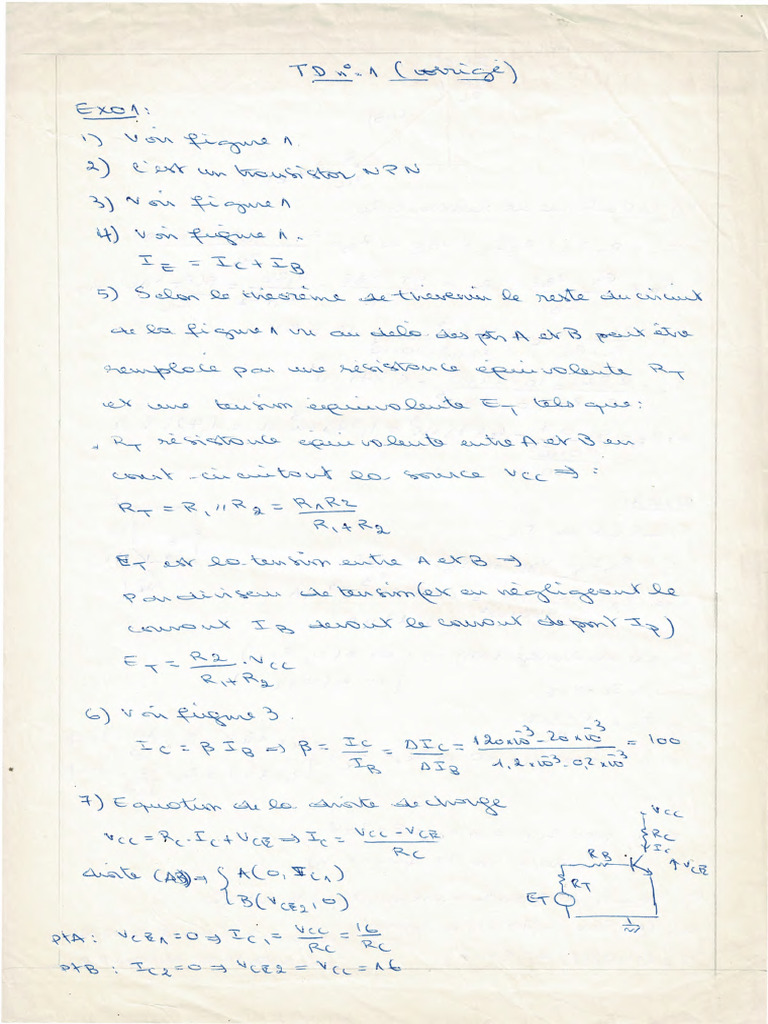 TD n°1 (corrigé)
EXO1:
1) Voir figure 1
2) C'est un transistor NPN
3) Voir figure 1
4) Voir figure 1.
I_E = I_C + I_B
5) Selon le théorème de thévenin le reste du circuit
de la figure 1 vu au delà des pts A et B peut être
remplacé par une résistance équivalente R_T
et une tension équivalente E_T tels que:
. R_T résistance équivalente entre A et B en
court-circuitant la source VCC ⇒ :
R_T = R_1 // R_2 = R1R2 / (R_1+R_2)
E_T est la tension entre A et B →
Par diviseur de tension (et en négligeant le
courant I_B devant le courant de pont I_P)
E_T = R2 / (R_1+R_2) . VCC
6) Voir figure 3.
I_C = β I_B ⇒ β = I_C / I_B = ΔI_C / ΔI_B = (120x10^-3 - 20x10^-3) / (1,2x10^-3 - 0,2x10^-3) = 100
7) Equation de la droite de charge
VCC = R_C . I_C + V_CE ⇒ I_C = (VCC - V_CE) / R_C
droite (AB) ⇒ { A(0, I_C1)
B(V_CE2, 0)
ptA : V_CE1 = 0 ⇒ I_C1 = VCC / R_C = 16 / R_C
ptB : I_C2 = 0 ⇒ V_CE2 = VCC = 16
VCC
RC
IC
RB
VCE
RT
ET